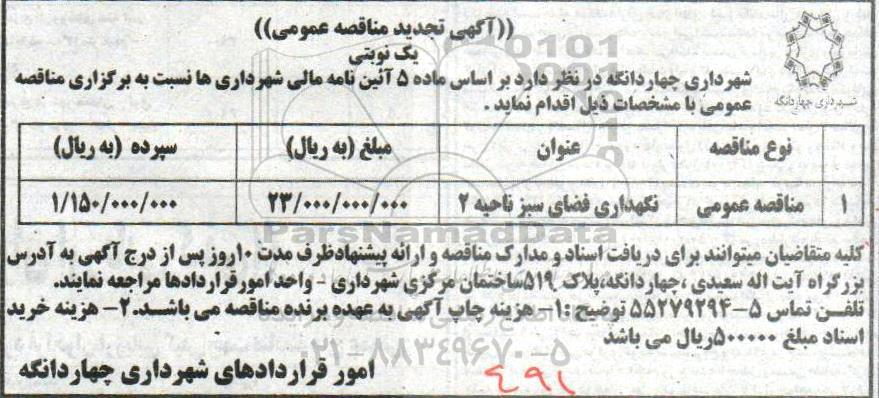 ((آگهی تجدید مناقصه عمومی))
یک نوبتی
شهرداری چهاردانگه
شهرداری چهاردانگه در نظر دارد بر اساس ماده ۵ آئین نامه مالی شهرداری ها نسبت به برگزاری مناقصه
عمومی با مشخصات ذیل اقدام نماید .
نوع مناقصه عنوان مبلغ (به ریال) سپرده (به ریال)
۱ مناقصه عمومی نگهداری فضای سبز ناحیه ۲ ۲۳/۰۰۰/۰۰۰/۰۰۰ ۱/۱۵۰/۰۰۰/۰۰۰
کلیه متقاضیان میتوانند برای دریافت اسناد و مدارک مناقصه و ارائه پیشنهادظرف مدت ۱۰روز پس از درج آگهی به آدرس
بزرگراه آیت اله سعیدی ،چهاردانگه،پلاک ۵۱۹ساختمان مرکزی شهرداری - واحد امورقراردادها مراجعه نمایند.
تلفن تماس ۵-۵۵۲۷۹۲۹۴ توضیح :۱- هزینه چاپ آگهی به عهده برنده مناقصه می باشد.۲- هزینه خرید
اسناد مبلغ ۵۰۰۰۰۰ریال می باشد
امور قراردادهای شهرداری چهاردانگه
۴۹۱
ParsNamadData
۰۲۱-۸۸۳۴۹۶۷۰-۵